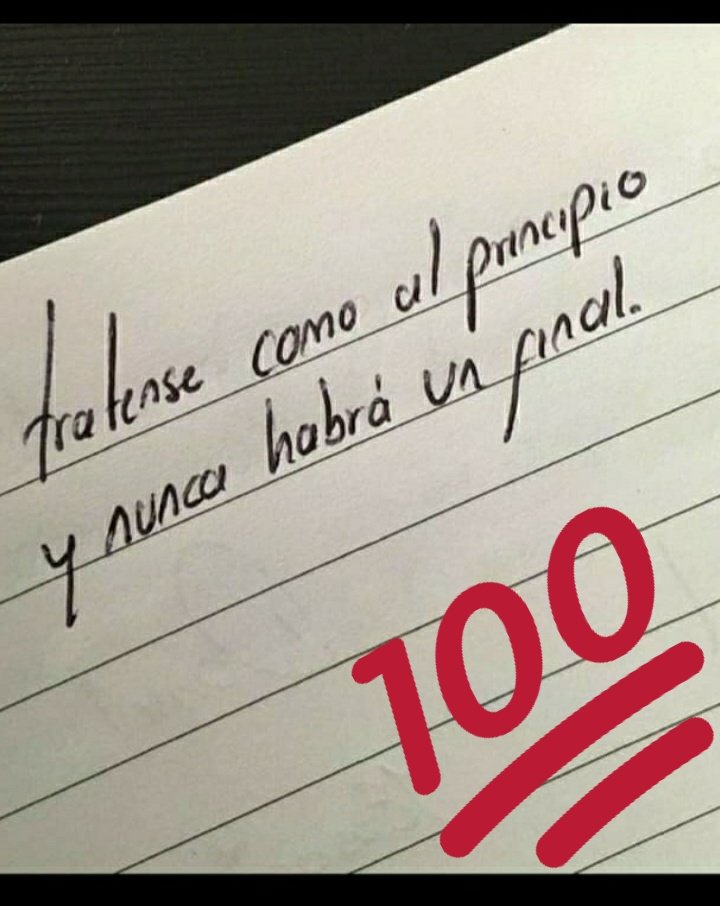 tratense como al principio
y nunca habrá un final.
100